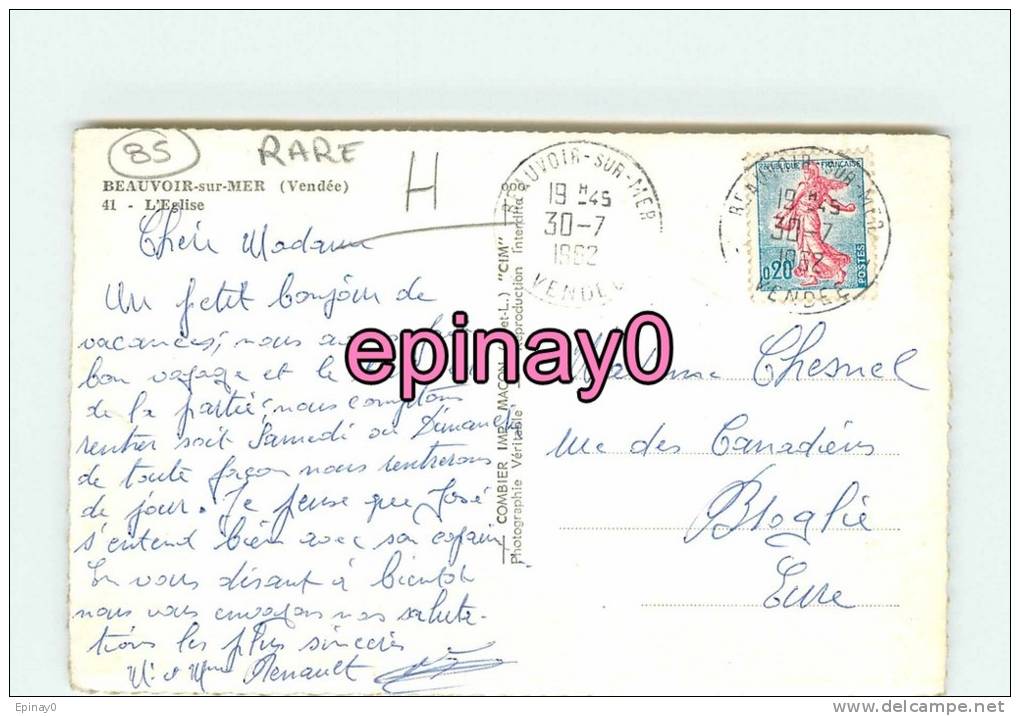 85 RARE H
BEAUVOIR-sur-MER (Vendée)
41 - L'Eglise
Chère Madame
Un petit bonjour de
vacances, nous avons fait
bon voyage et le
de la partie, nous comptons
rentrer soit Samedi ou Dimanche
de toute façon nous rentrerons
de jour. Je pense que José
s'entend bien avec son copain
En vous disant à bientôt
nous vous envoyons nos saluta-
tions les plus sincères
Mr & Mme Renault
COMBIER IMP. MACON "CIM"
Photographie Véritable Reproduction Interdite
BEAUVOIR-SUR-MER
19 H 45
30-7
1962
VENDEE
REPUBLIQUE FRANÇAISE
0,20
POSTES
BEAUVOIR-SUR-MER
19 H 45
30-7
1962
VENDEE
Madame Chesnel
rue des Canadiens
Broglie
Eure
epinay0
Epinay0
http://www.delcampe.net